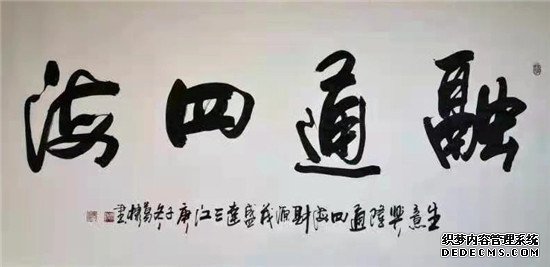 融通四海
生意興隆通四海財源茂盛達三江庚子冬
書
织梦内容管理系统
DEDECMS.COM